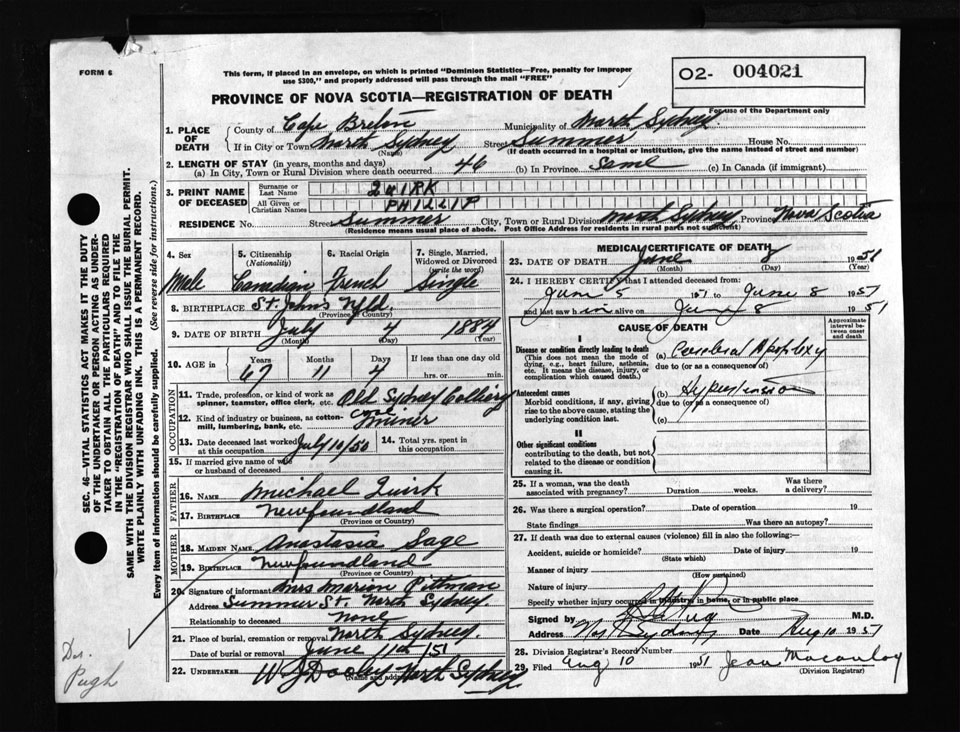 FORM 6
This form, if placed in an envelope, on which is printed "Dominion Statistics—Free, penalty for improper
use $300," and properly addressed will pass through the mail "FREE"
O2- 004021
PROVINCE OF NOVA SCOTIA—REGISTRATION OF DEATH
For use of the Department only
1. PLACE OF DEATH
County of Cape Breton Municipality of North Sydney.
If in City or Town North Sydney Street Summer House No.
(Name) (If death occurred in a hospital or institution, give the name instead of street and number)
2. LENGTH OF STAY (in years, months and days)
(a) In City, Town or Rural Division where death occurred 46 (b) In Province Same (c) In Canada (if immigrant)
3. PRINT NAME OF DECEASED
Surname or Last Name QUIRK
All Given or Christian Names PHILLIP
RESIDENCE No. Street Summer City, Town or Rural Division North Sydney Province Nova Scotia
(Residence means usual place of abode. Post Office Address for residents in rural parts not sufficient)
4. Sex
5. Citizenship (Nationality)
6. Racial Origin
7. Single, Married, Widowed or Divorced (write the word)
Male Canadian French Single
8. BIRTHPLACE St. Johns Nfld
(Province or Country)
9. DATE OF BIRTH July 4 1884
(Month) (Day) (Year)
10. AGE in Years Months Days If less than one day old
67 11 4 hrs. or min.
OCCUPATION
11. Trade, profession, or kind of work as spinner, teamster, office clerk, etc. Old Sydney Colliery
12. Kind of industry or business, as cotton-mill, lumbering, bank, etc. coal miner
13. Date deceased last worked at this occupation July 10/50
14. Total yrs. spent in this occupation
15. If married give name of wife or husband of deceased
FATHER
16. NAME Michael Quirk
17. BIRTHPLACE Newfoundland
(Province or Country)
MOTHER
18. MAIDEN NAME Anastasia Sage
19. BIRTHPLACE Newfoundland
(Province or Country)
20. Signature of informant Mrs Marion Pittman
Address Summer St. North Sydney.
Relationship to deceased none
21. Place of burial, cremation or removal North Sydney.
Date of burial or removal June 11th 151
22. UNDERTAKER W J Dooley North Sydney
(Name and address)
MEDICAL CERTIFICATE OF DEATH
23. DATE OF DEATH June 8 1951
(Month) (Day) (Year)
24. I HEREBY CERTIFY that I attended deceased from:
June 5 1951 to June 8 1951
and last saw h im alive on June 8 1951
CAUSE OF DEATH
Approximate interval between onset and death
I
Disease or condition directly leading to death
(This does not mean the mode of dying, e.g., heart failure, asthenia, etc. It means the disease, injury, or complication which caused death.)
(a) Cerebral Apoplexy
due to (or as a consequence of)
Antecedent causes
Morbid conditions, if any, giving rise to the above cause, stating the underlying condition last.
(b) Hypertension
due to (or as a consequence of)
(c)
II
Other significant conditions
contributing to the death, but not related to the disease or condition causing it.
25. If a woman, was the death associated with pregnancy? Duration weeks. Was there a delivery?
26. Was there a surgical operation? Date of operation 19
State findings Was there an autopsy?
27. If death was due to external causes (violence) fill in also the following:—
Accident, suicide or homicide? Date of injury 19
(State which)
Manner of injury
(How sustained)
Nature of injury
Specify whether injury occurred in industry, in home, or in public place
Signed by M.D.
Address No. Sydney Date Aug 10 1951
28. Division Registrar's Record Number
29. Filed Aug 10 1951 Jean Macaulay
(Division Registrar)
SEC. 46—VITAL STATISTICS ACT MAKES IT THE DUTY
OF THE UNDERTAKER OR PERSON ACTING AS UNDER-
TAKER TO OBTAIN ALL THE PARTICULARS REQUIRED
IN THE "REGISTRATION OF DEATH" AND TO FILE THE
SAME WITH THE DIVISION REGISTRAR WHO SHALL ISSUE THE BURIAL PERMIT.
WRITE PLAINLY WITH UNFADING INK. THIS IS A PERMANENT RECORD.
Every item of information should be carefully supplied. (See reverse side for instructions.)
Pugh